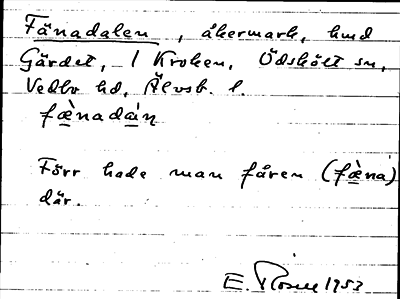 Fänadalen, åkermark, hmd
Gärdet, 1 Kroken, Ödskölt sn,
Vedbo hd, Älvsb. l.
fæ̀nadáɩ̀n
Förr hade man fåren (fæ̀na)
där.
E. Rosell 1953